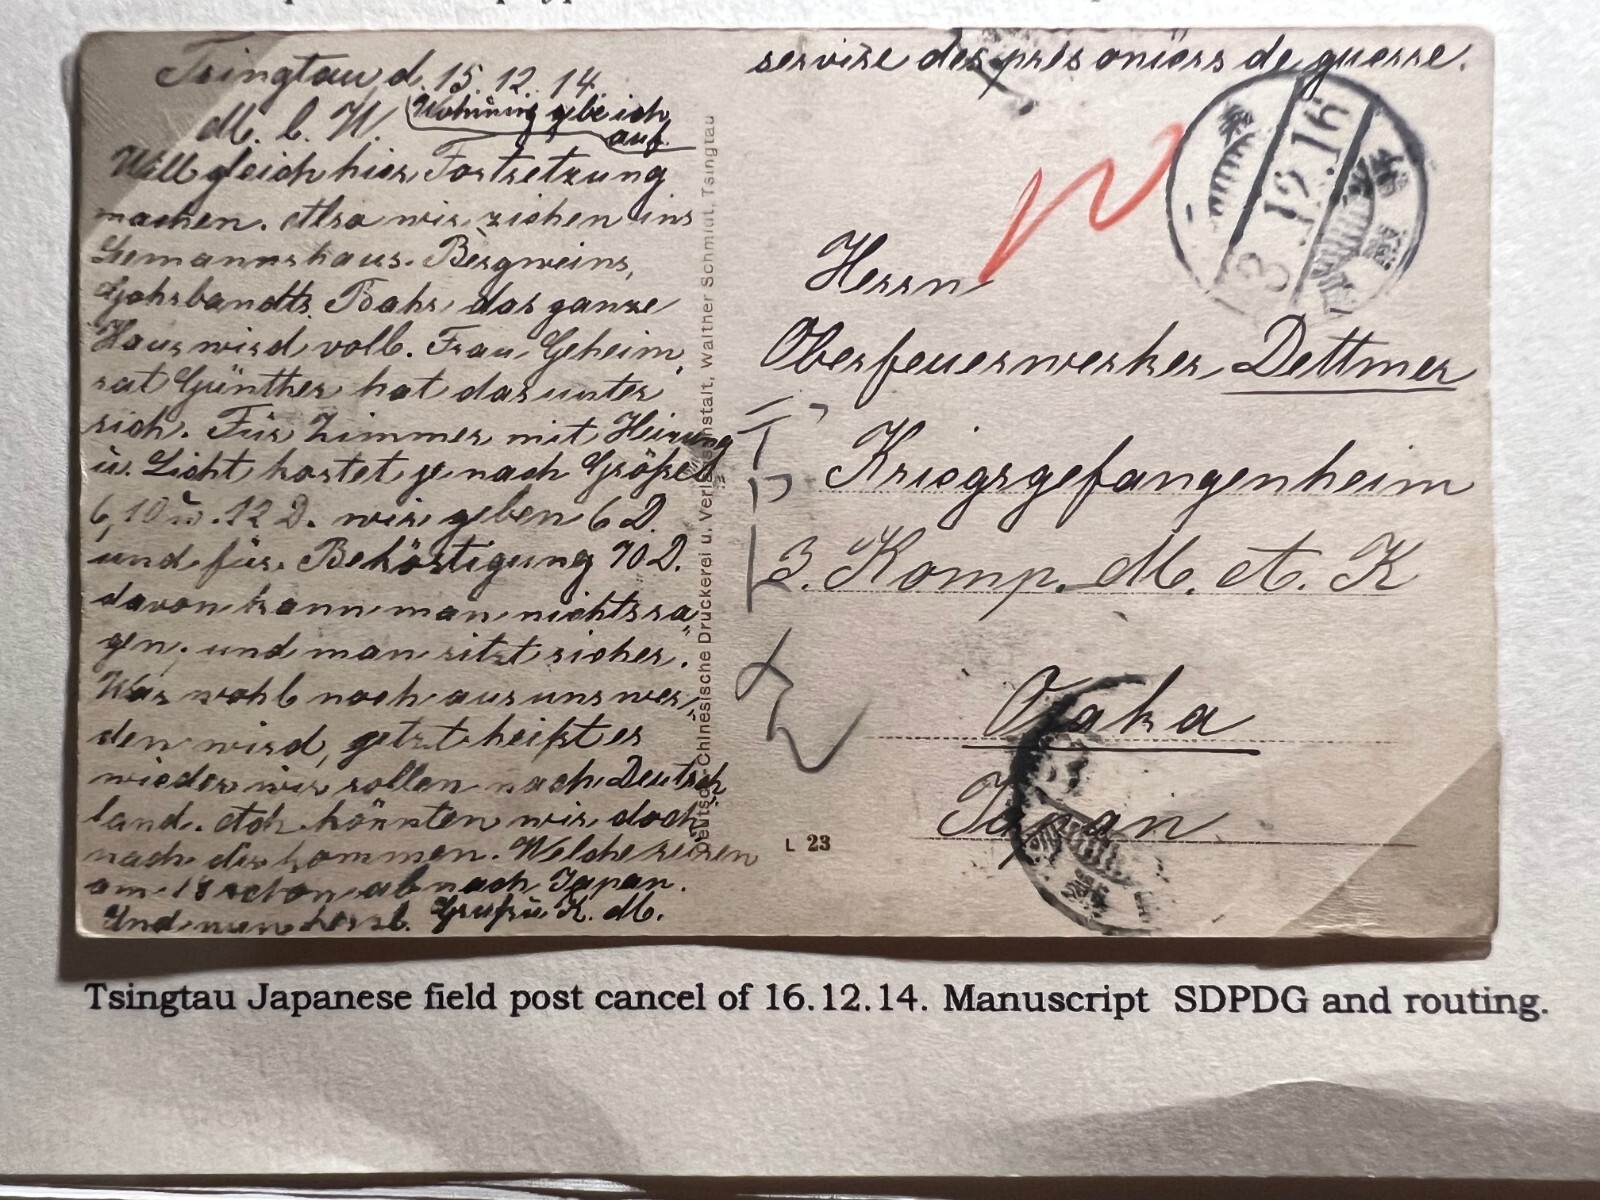 Tsingtau d. 15. 12. 14.
M. l. W. (Wohnung gebe ich
auf.
Will gleich hier Fortsetzung
machen. Also wir ziehen ins
Seemannshaus. Bergweins,
Gohrbandts. Boahr das ganze
Haus wird voll. Frau Geheim„
rat Günther hat das unter
sich. Für Zimmer mit Heizung
u. Licht kostet je nach Größe
6, 10 u. 12 D. wir geben 6 D.
und für Beköstigung 70 D.
davon kann man nichts sa„
gen. und man sitzt sicher.
Was wohl noch aus uns wer„
den wird, jetzt heißt es
wieder wir sollen nach Deutsch
land. Ach könnten wir doch
nach dir kommen. Welche reisen
am 18 schon ab nach Japan.
Und nun herzl. Gruß K. M.
Deutsch-Chinesische Druckerei u. Verlagsanstalt, Walther Schmidt, Tsingtau
servise des prisoniers de guerre.
3
12.16
Herrn
Oberfeuerwerker Dettmer
Kriegsgefangenheim
3. Komp. M. A. K
Osaka
Japan
L 23
Tsingtau Japanese field post cancel of 16.12.14. Manuscript SDPDG and routing.